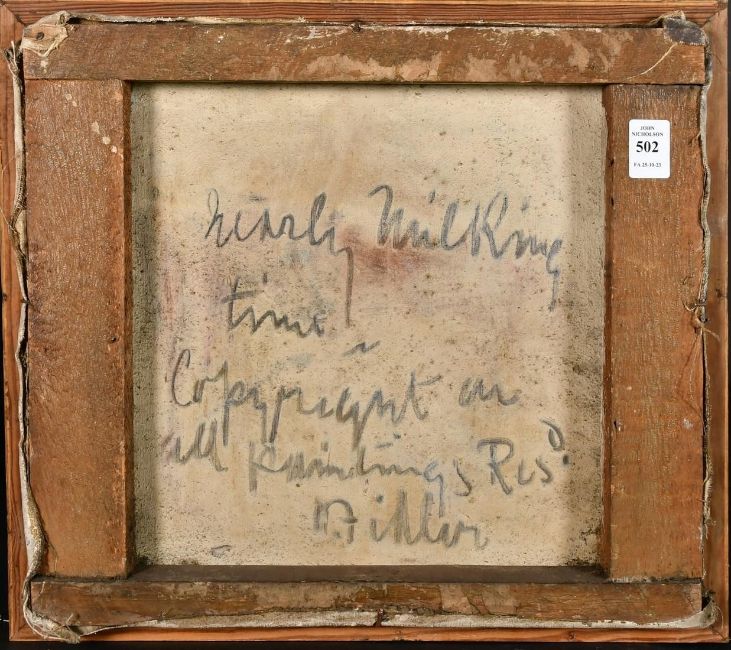 JOHN
NICHOLSON
502
FA 25-10-23
nearly Milking
time
Copyright on
all Paintings Resd.